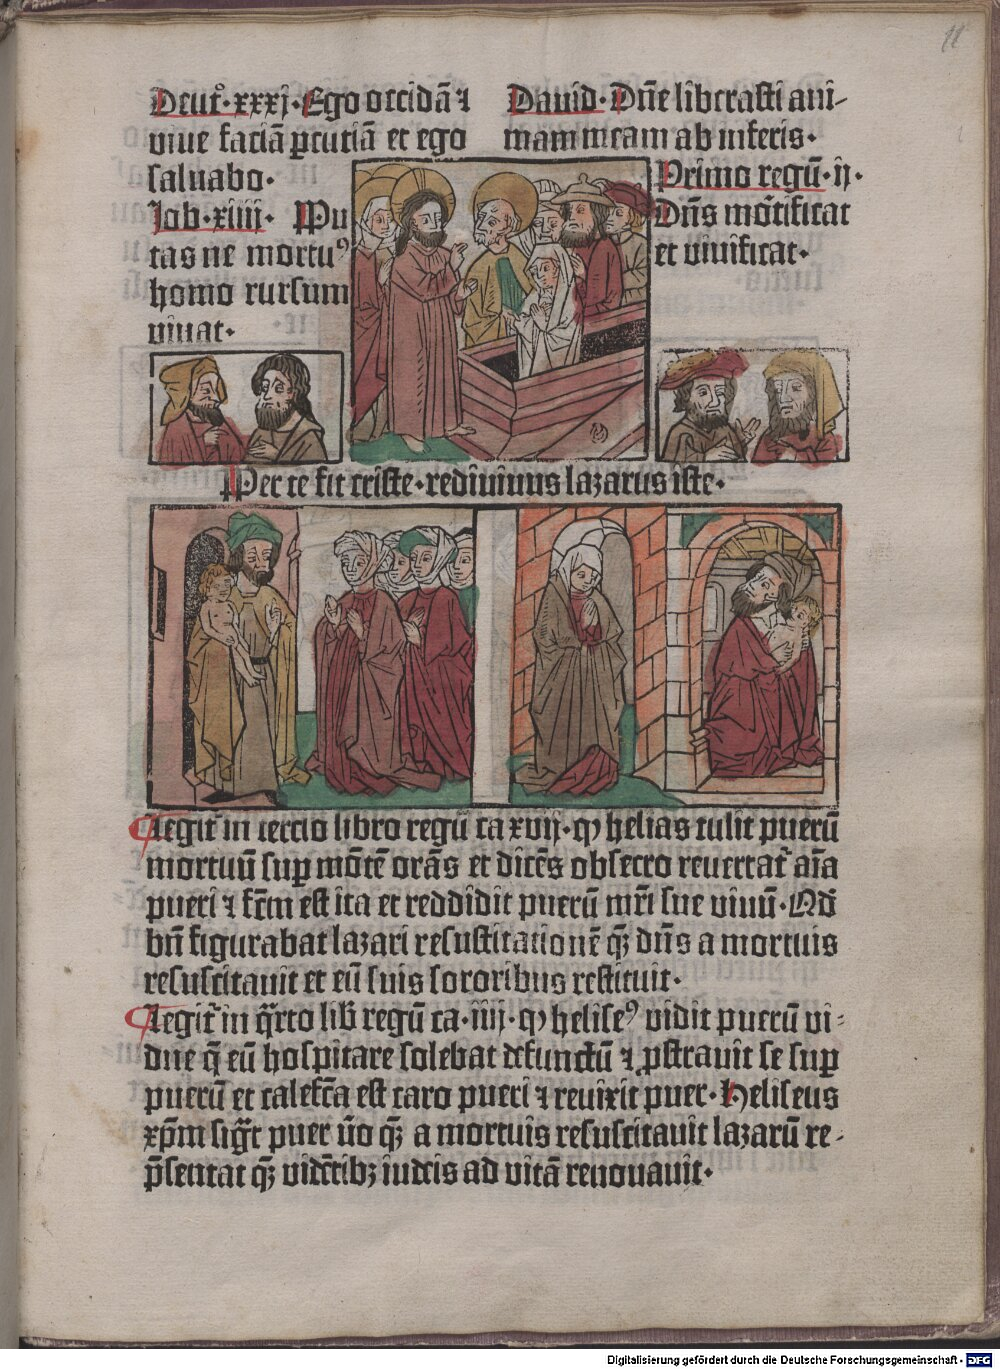 11
Deut᷒·xxxi·Ego occidā ⁊
viue faciā ꝑcutiā et ego
saluabo·
Iob·xiiii· Pu
tas ne mortuꝰ
homo rursum
viuat·
Dauid· Dn̄e liberasti ani-
mam meam ab inferis·
Primo regū·ij·
Dn̄s mōtificat
et viuificat·
Per te fit criste·rediuiuus lazarus iste·
Legit᷑ in tercio libro regū ca xvij·ꝙ helias tulit puerū
mortuū suꝑ mōtē orās et dicēs obsecro reuertat᷑ aīa
pueri ⁊ fc̄m est ita et reddidit puerū mr̄i sue viuū·Qd̄
bn̄ figurabat lazari resustitationē qꝫ dn̄s a mortuis
resuscitauit et eū suis sororibus restituit·
Legit᷑ in q̄rto lib᷑ regū ca·iiij·ꝙ heliseꝰ vidit puerū vi-
due q̄ eū hospitare solebat defunctū ⁊ ꝓstrauit se suꝑ
puerū et calefc̄a est caro pueri ⁊ reuixit puer·Heliseus
xp̄m sigt᷑ puer v̄o qꝫ a mortuis resuscitauit lazarū re-
p̄sentat qꝫ vidētibꝫ iudeis ad vitā renouauit·
Digitalisierung gefördert durch die Deutsche Forschungsgemeinschaft - DFG